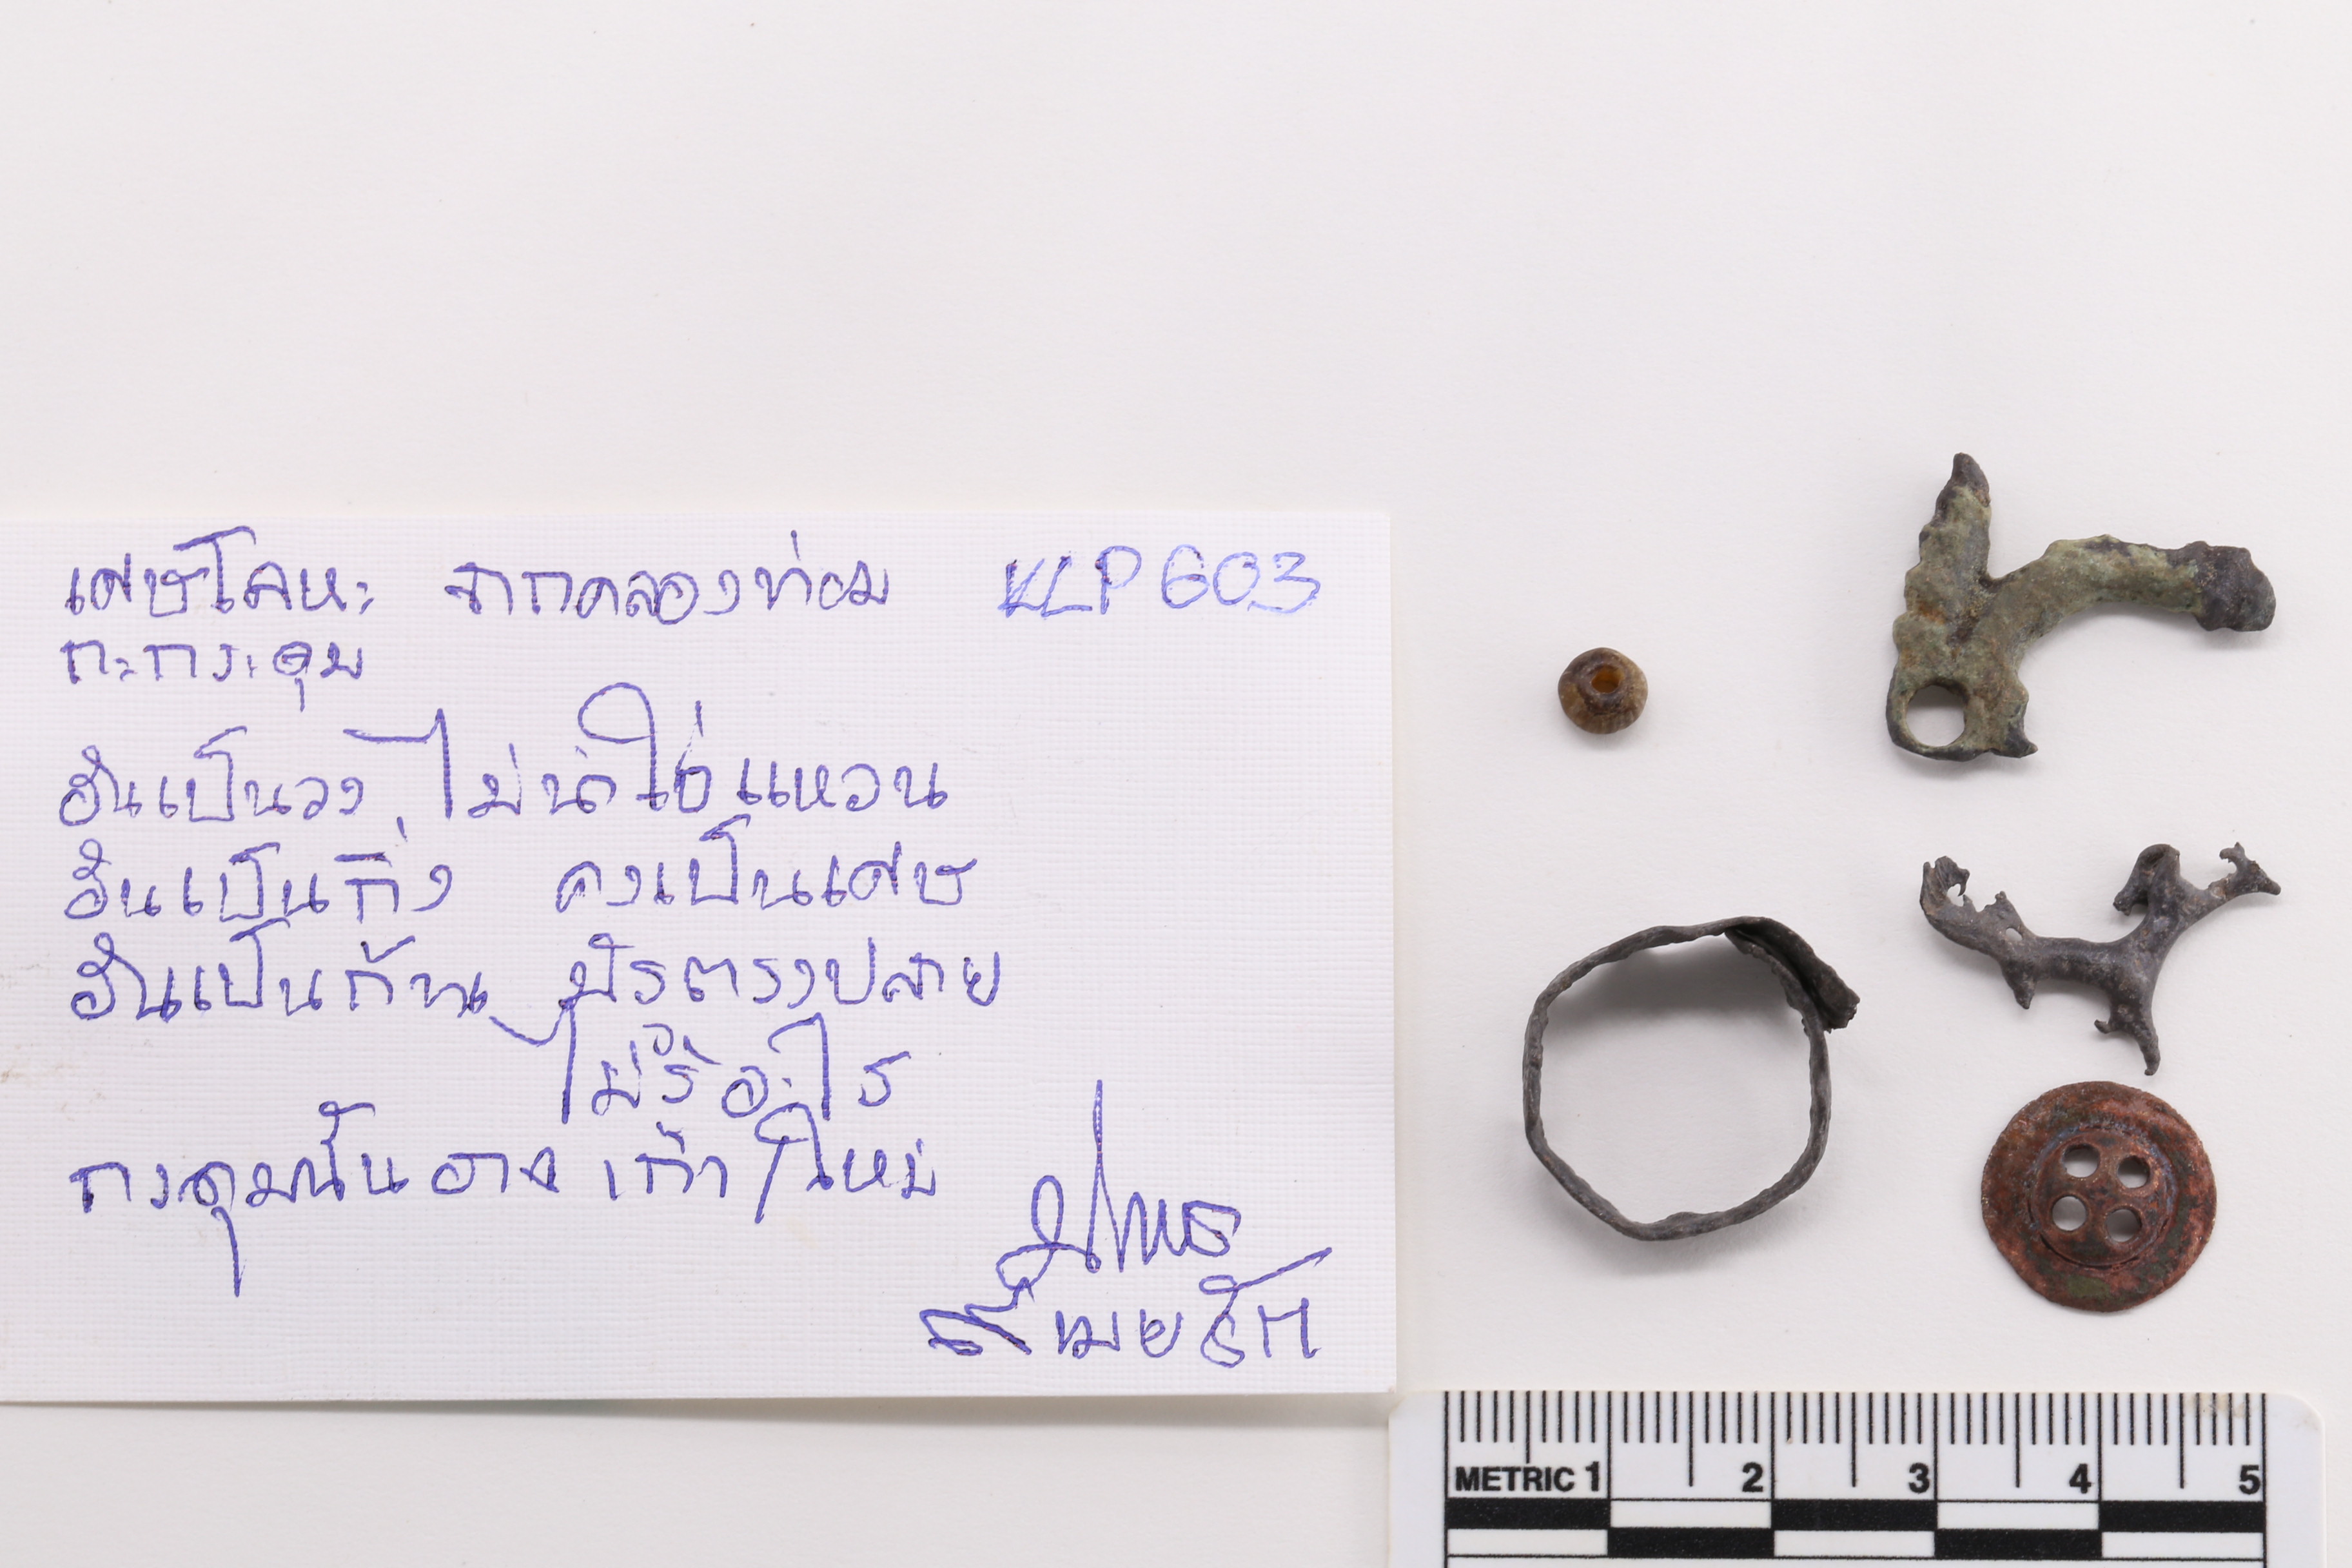 เศษโลหะ จากคลองท่อม KLP603
กะกระดุม
อันเป็นวง ไม่น่าใช่แหวน
อันเป็นกิ่ง คงเป็นเศษ
อันเป็นก้าน มีรูตรงปลาย
ไม่รู้อะไร
กระดุมนั้นอาจเก่า/ใหม่
METRIC 1 2 3 4 5